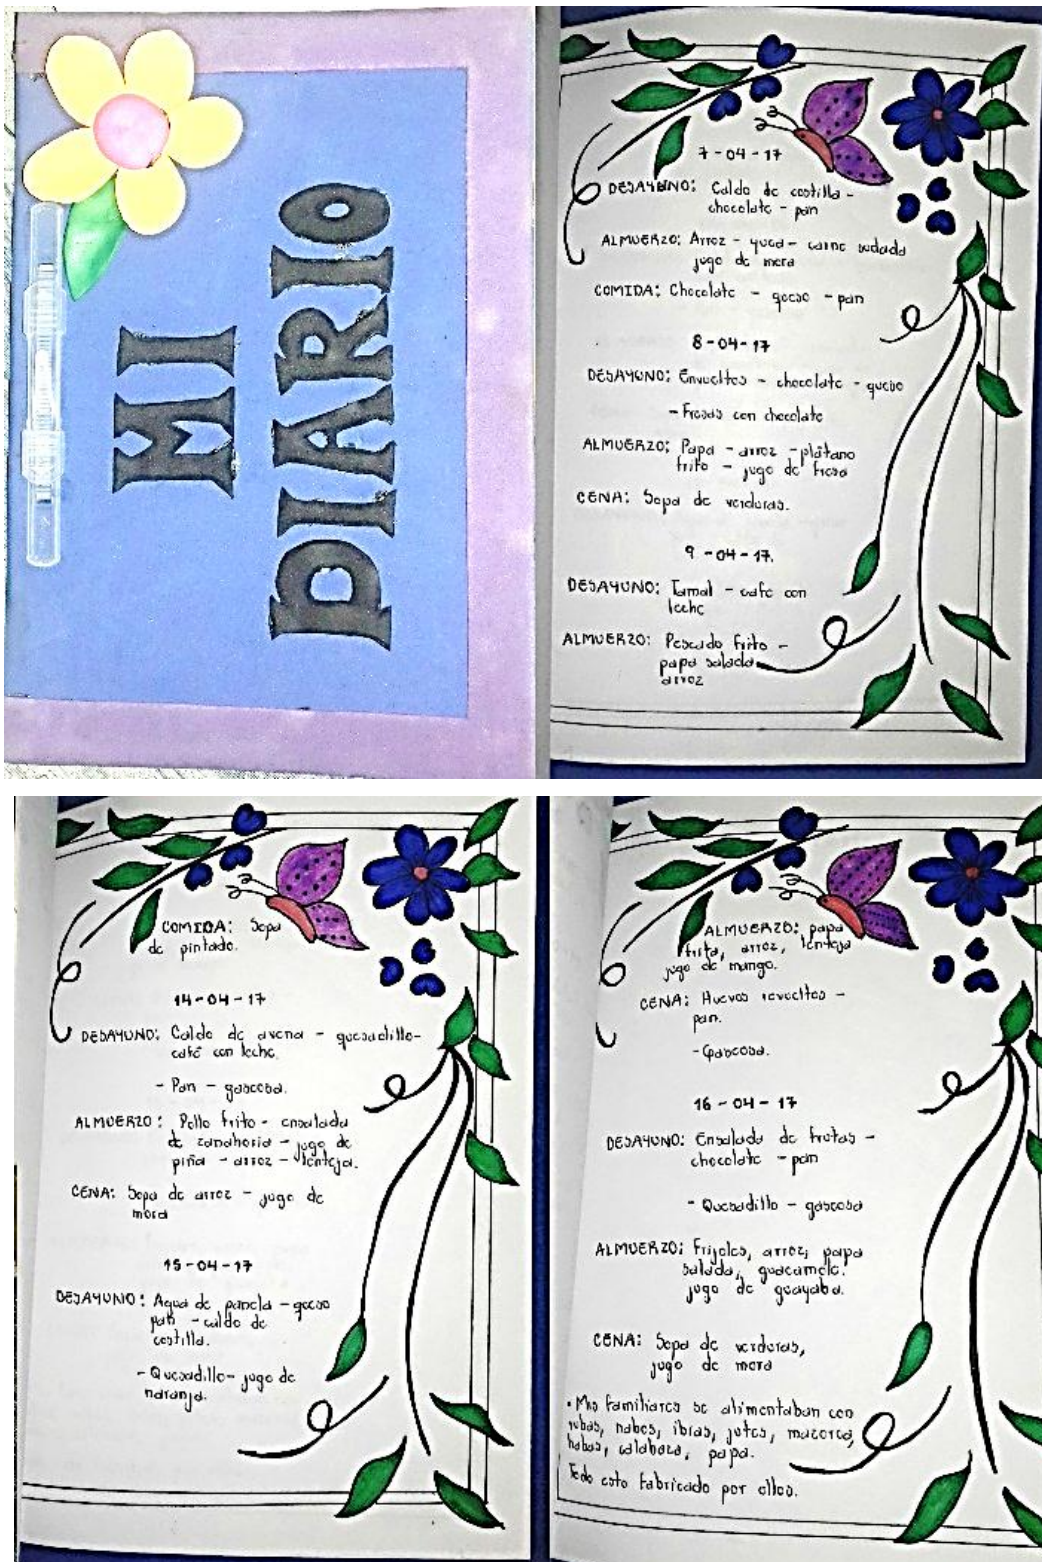 MI
DIARIO
7-04-17
DESAYUNO: Caldo de costilla -
chocolate - pan
ALMUERZO: Arroz - yuca - carne sudada
jugo de mora
COMIDA: Chocolate - queso - pan
8-04-17
DESAYUNO: Envueltos - chocolate - queso
- Fresas con chocolate
ALMUERZO: Papa - arroz - plátano
frito - jugo de fresa
CENA: Sopa de verduras.
9-04-17.
DESAYUNO: Tamal - café con
leche
ALMUERZO: Pescado frito -
papa salada
arroz
COMIDA: Sopa
de pintado.
14-04-17
DESAYUNO: Caldo de avena - quesadillo-
café con leche.
- Pan - gaseosa.
ALMUERZO: Pollo frito - ensalada
de zanahoria - jugo de
piña - arroz - lenteja.
CENA: Sopa de arroz - jugo de
mora
15-04-17
DESAYUNO: Agua de panela - queso
pan - caldo de
costilla.
- Quesadillo- jugo de
naranja.
ALMUERZO: papa
frita, arroz, lenteja
jugo de mango.
CENA: Huevos revueltos -
pan.
- Gaseosa.
16-04-17
DESAYUNO: Ensalada de frutas -
chocolate - pan
- Quesadillo - gaseosa
ALMUERZO: Frijoles, arroz, papa
salada, guacamole.
jugo de guayaba.
CENA: Sopa de verduras,
jugo de mora
• Mis familiares se alimentaban con
rubas, nabos, ibias, jutes, mazorca,
habas, calabaza, papa.
Todo esto fabricado por ellos.